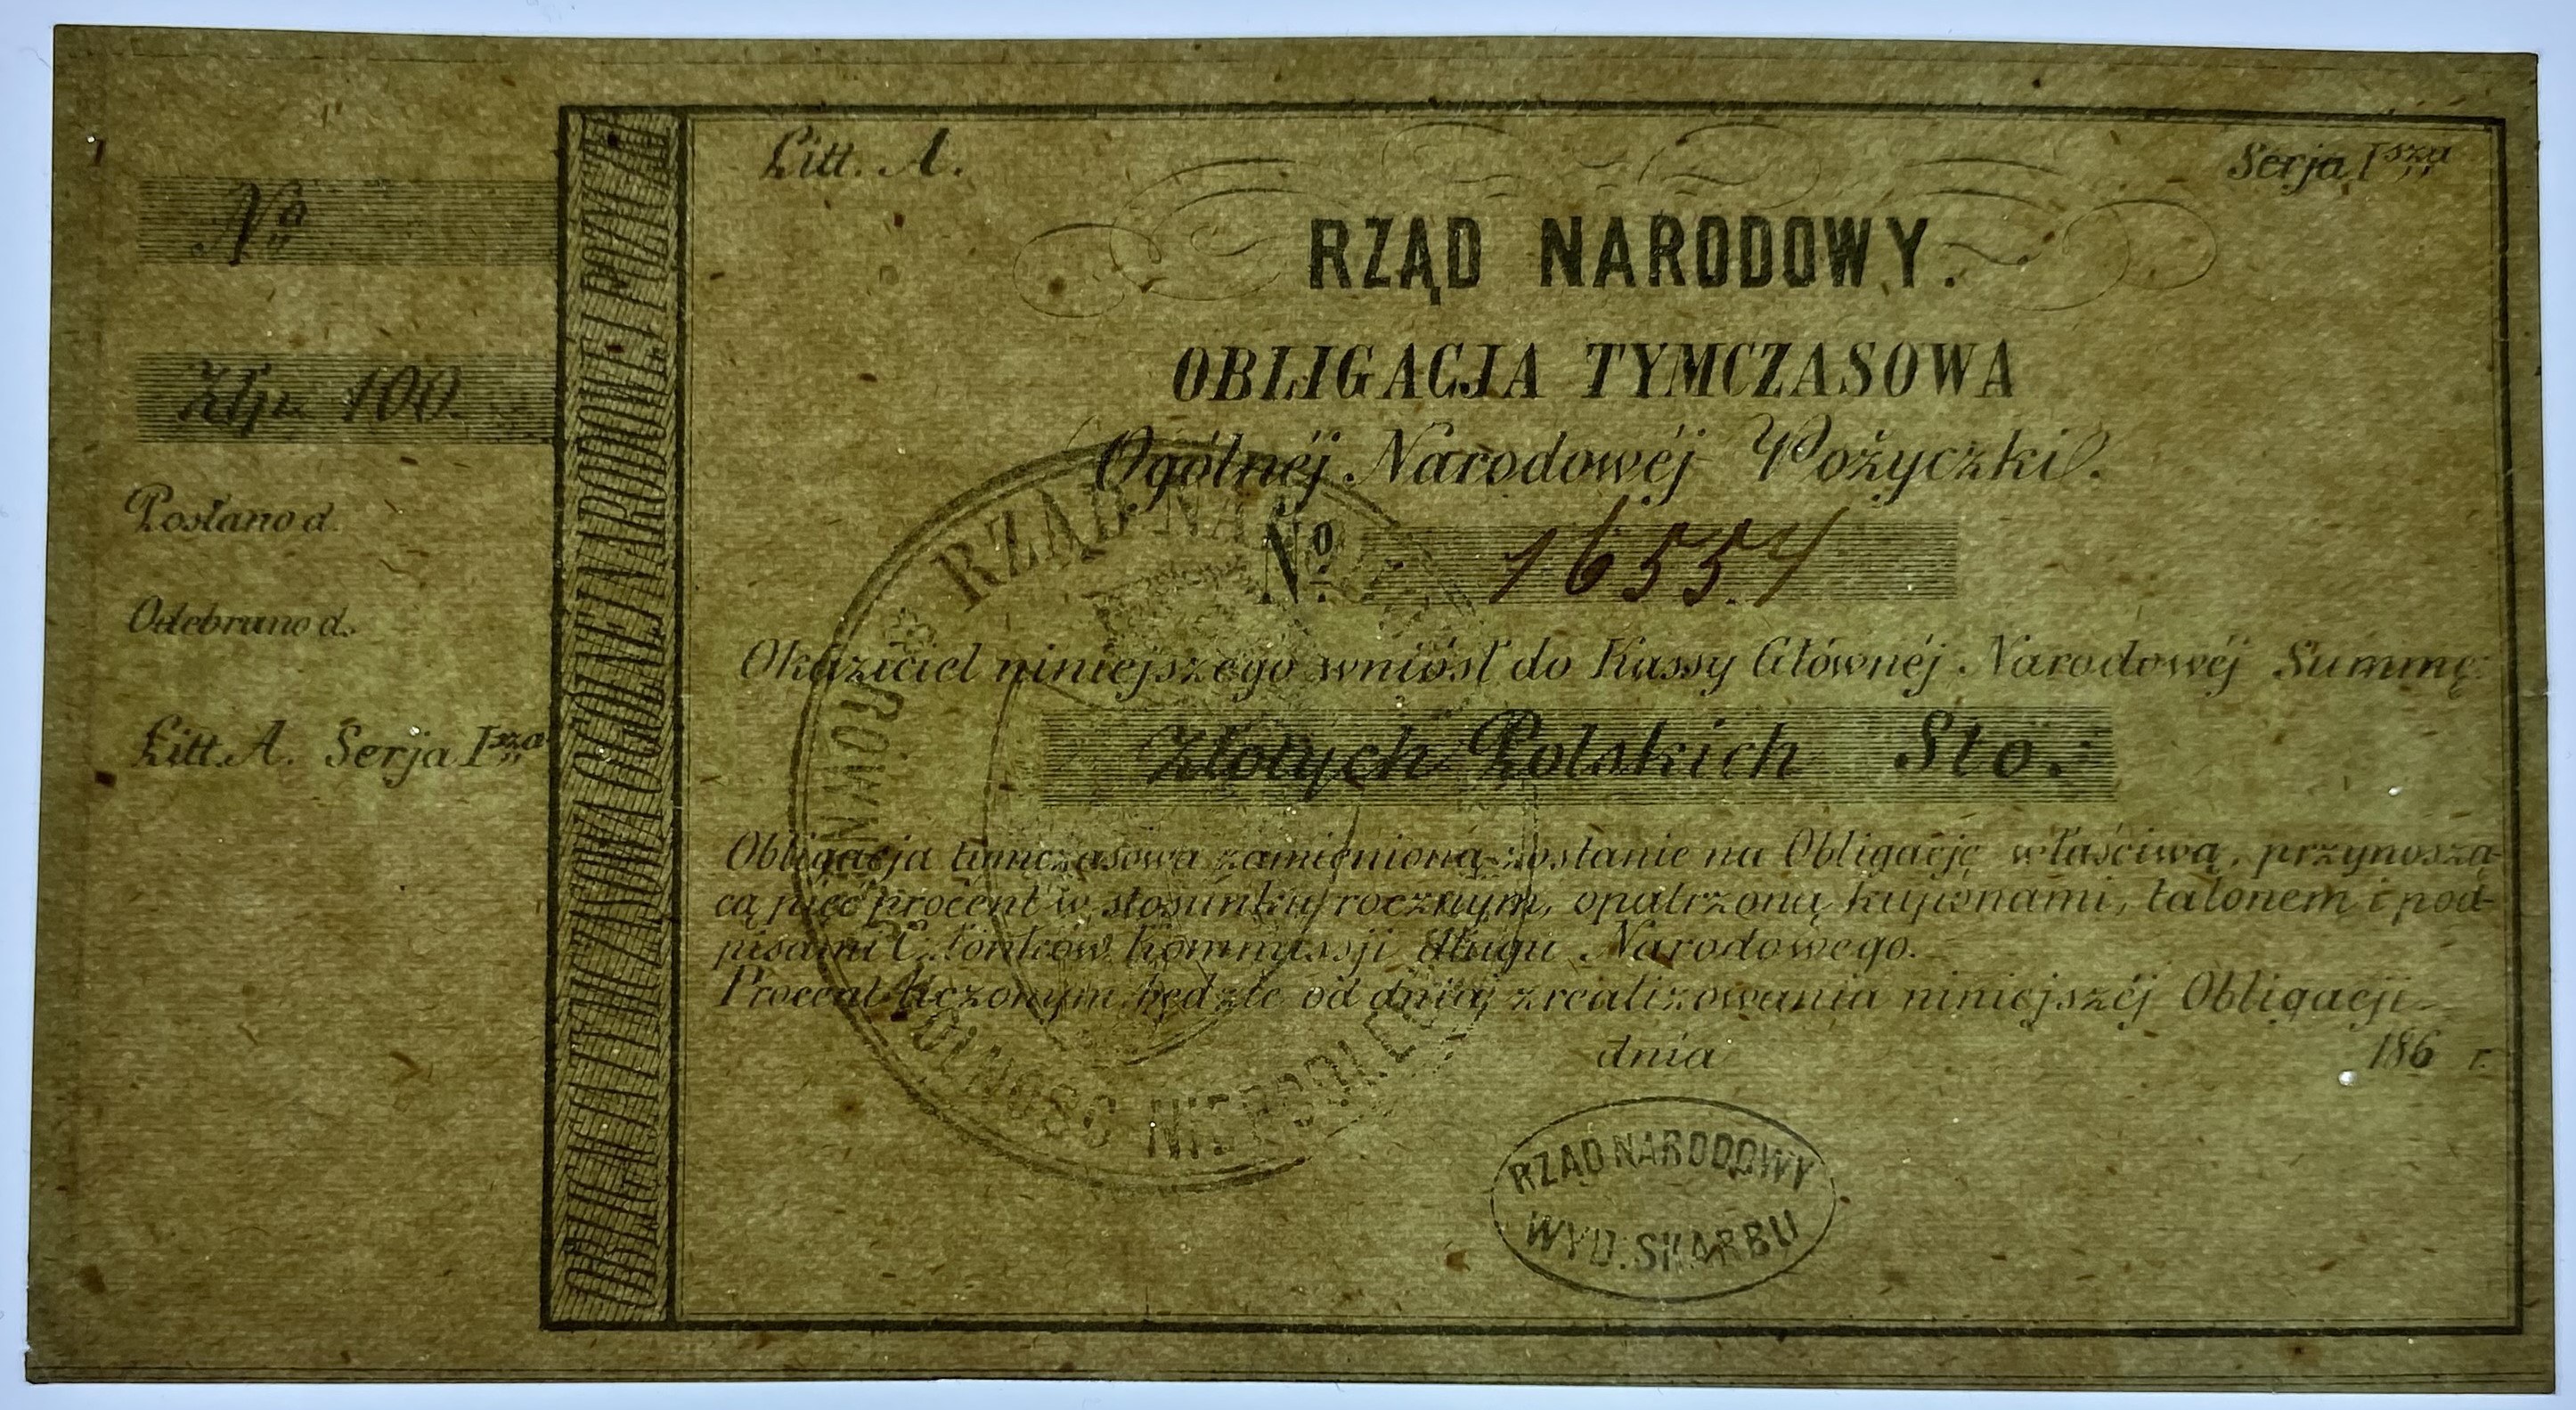 Nº
Złp. 100.
Posłano d.
Odebrano d.
Litt. A. Serja Isza
OBLIGACJA TYMCZASOWA OGÓLNEJ NARODOWEJ POŻYCZKI
Litt. A.
Serja Isza
RZĄD NARODOWY.
OBLIGACJA TYMCZASOWA
Ogólnéj Narodowéj Pożyczki.
Nº 16554
Okaziciel niniejszego wniósł do Kassy Głównéj Narodowéj Summę:
Złotych Polskich Sto.
Obligacja tymczasowa zamienioną zostanie na Obligację właściwą, przynoszą-
cą pięć procent w stosunku rocznym, opatrzoną kuponami, talonem i pod-
pisami Członków Kommissji długu Narodowego.
Procent liczonym będzie od dnia zrealizowania niniejszéj Obligacji
dnia 186 r.
RZĄD NA
ROWNO
WOLNOSC NIEPODLE
RZĄD NARODOWY
WYD. SKARBU